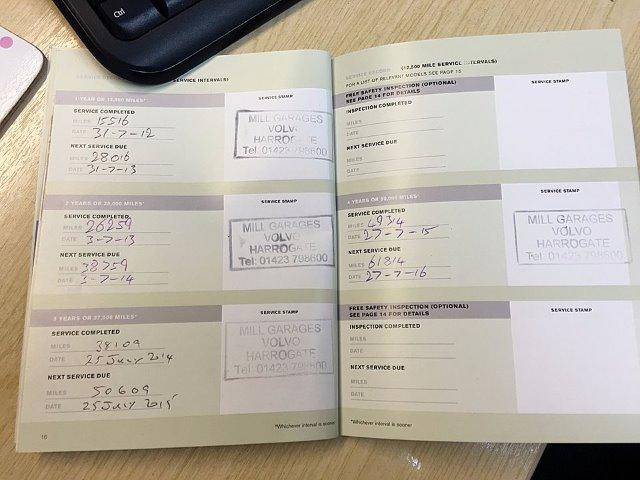 Ctrl
SERVICE RECORD
SERVICE INTERVALS)
1 YEAR OR 12,500 MILES*
SERVICE STAMP
SERVICE COMPLETED
MILES 15516
DATE 31-7-12
NEXT SERVICE DUE
MILES 28016
DATE 31-7-13
MILL GARAGES
VOLVO
HARROGATE
Tel: 01423 798600
2 YEARS OR 25,000 MILES*
SERVICE STAMP
SERVICE COMPLETED
MILES 26259
DATE 3-7-13
NEXT SERVICE DUE
MILES 38759
DATE 3-7-14
MILL GARAGES
VOLVO
HARROGATE
Tel: 01423 798600
3 YEARS OR 37,500 MILES*
SERVICE STAMP
SERVICE COMPLETED
MILES 38109
DATE 25 July 2014
NEXT SERVICE DUE
MILES 50609
DATE 25 July 2015
MILL GARAGES
VOLVO
HARROGATE
Tel: 01423 798600
*Whichever interval is sooner
16
SERVICE RECORD (12,500 MILE SERVICE INTERVALS)
FOR A LIST OF RELEVANT MODELS SEE PAGE 15
FREE SAFETY INSPECTION (OPTIONAL)
SEE PAGE 14 FOR DETAILS
SERVICE STAMP
INSPECTION COMPLETED
MILES
DATE
NEXT SERVICE DUE
MILES
DATE
4 YEARS OR 50,000 MILES*
SERVICE STAMP
SERVICE COMPLETED
MILES 49314
DATE 27-7-15
NEXT SERVICE DUE
MILES 61814
DATE 27-7-16
MILL GARAGES
VOLVO
HARROGATE
Tel: 01423 798600
FREE SAFETY INSPECTION (OPTIONAL)
SEE PAGE 14 FOR DETAILS
SERVICE STAMP
INSPECTION COMPLETED
MILES
DATE
NEXT SERVICE DUE
MILES
DATE
*Whichever interval is sooner